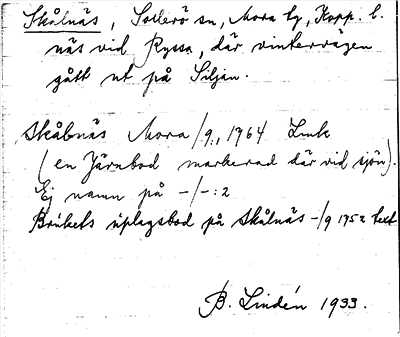 Skålnäs, Sollerö sn, Mora tg, Kopp. l.
näs vid Ryssa, där vintervägen
gått ut på Siljan.
Skålnäs Mora /9:, 1764 Link
(en Järnbod markerad där vid sjön).
Ej namn på -/-:2
Brukets uplagsbod på Skålnäs -/9 1752 text
B. Lindén 1933.